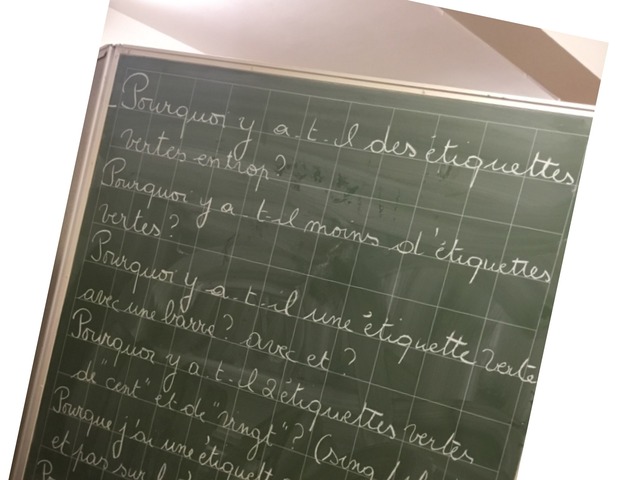 Pourquoi y a-t-il des étiquettes
vertes en trop?
Pourquoi y a-t-il moins d'étiquettes
vertes?
Pourquoi y a-t-il une étiquette verte
avec une barre? avec et?
Pourquoi y a-t-il 2 étiquettes vertes
de "cent" et de "vingt"? (sing
Pourque j'ai une étiquett
et pas sur l